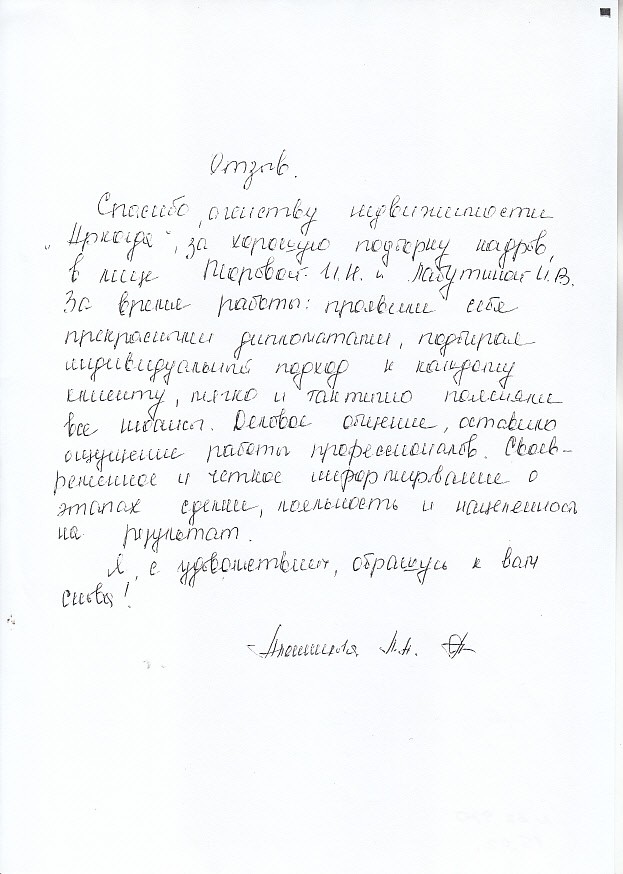 Отзыв.
Спасибо, агенству недвижимости
„Аркада“, за хорошую подборку кадров,
в лице И.Н. и Лабутиной И.В.
За время работы: проявили себя
прекрасными дипломатами, подбирая
индивидуальный подход к каждому
клиенту, мягко и тактично поясняли
все нюансы. Деловое общение, оставило
ощущение работы профессионалов. Своев-
ременное и четкое информирование о
этапах сделки, лояльность и нацеленность
на результат.
Я, с удовольствием, обращусь к вам
снова!